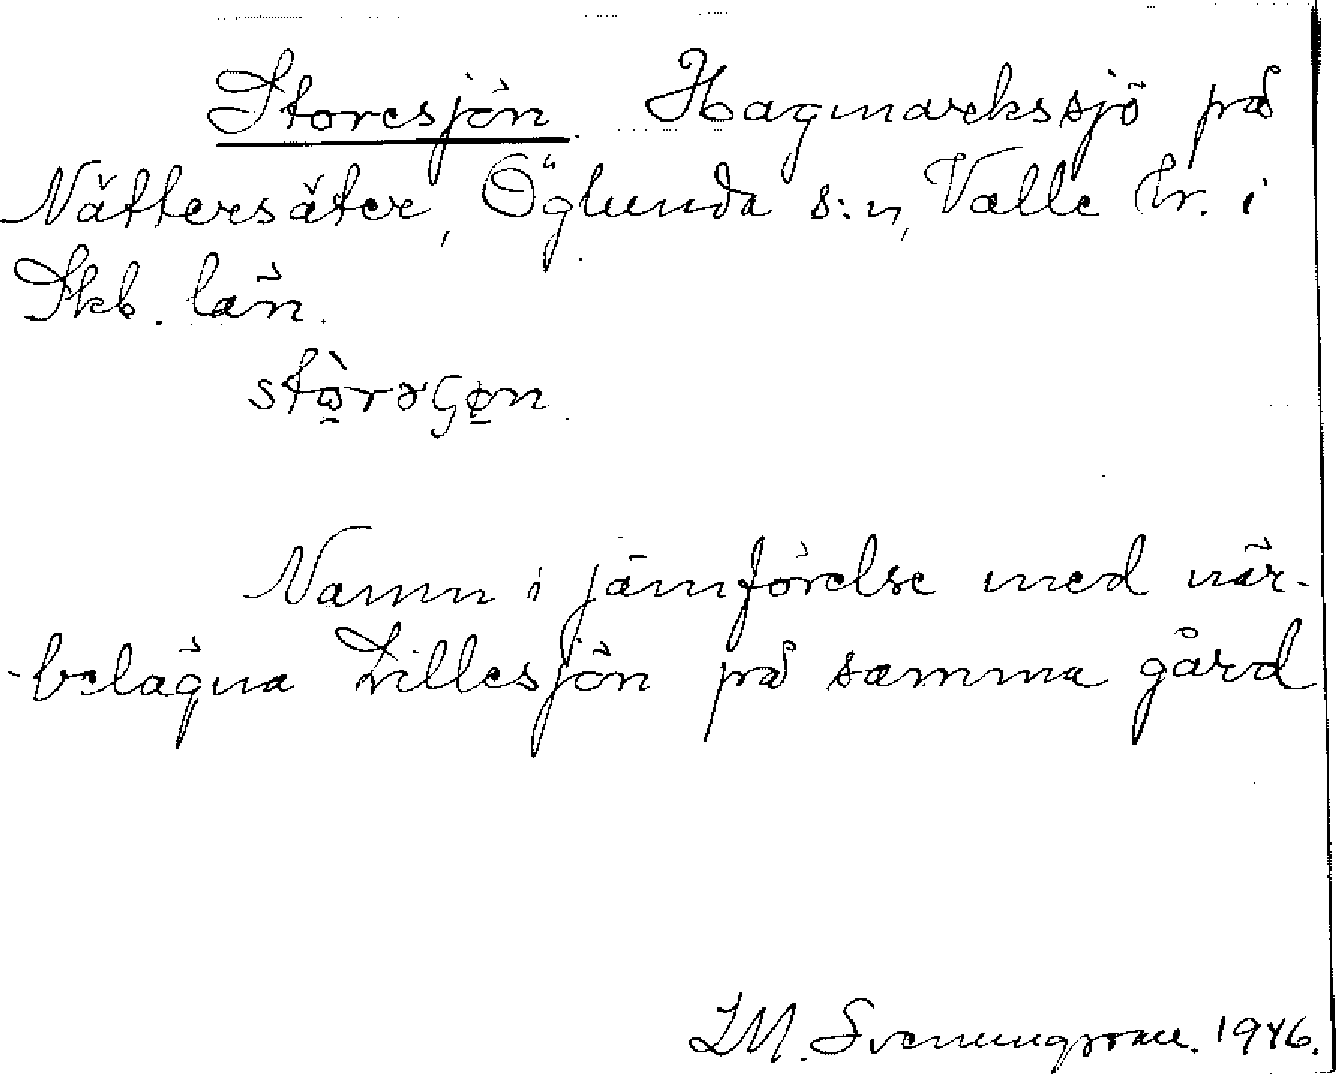 Storesjön. Hagmarkssjö på
Nättersäter, Öglunda s:n, Valle hr. i
Skb. län.
stòrəɢøn.
Namn i jämförelse med när-
-belägna Lillesjön på samma gård
I.M. Svenungsson. 1946.